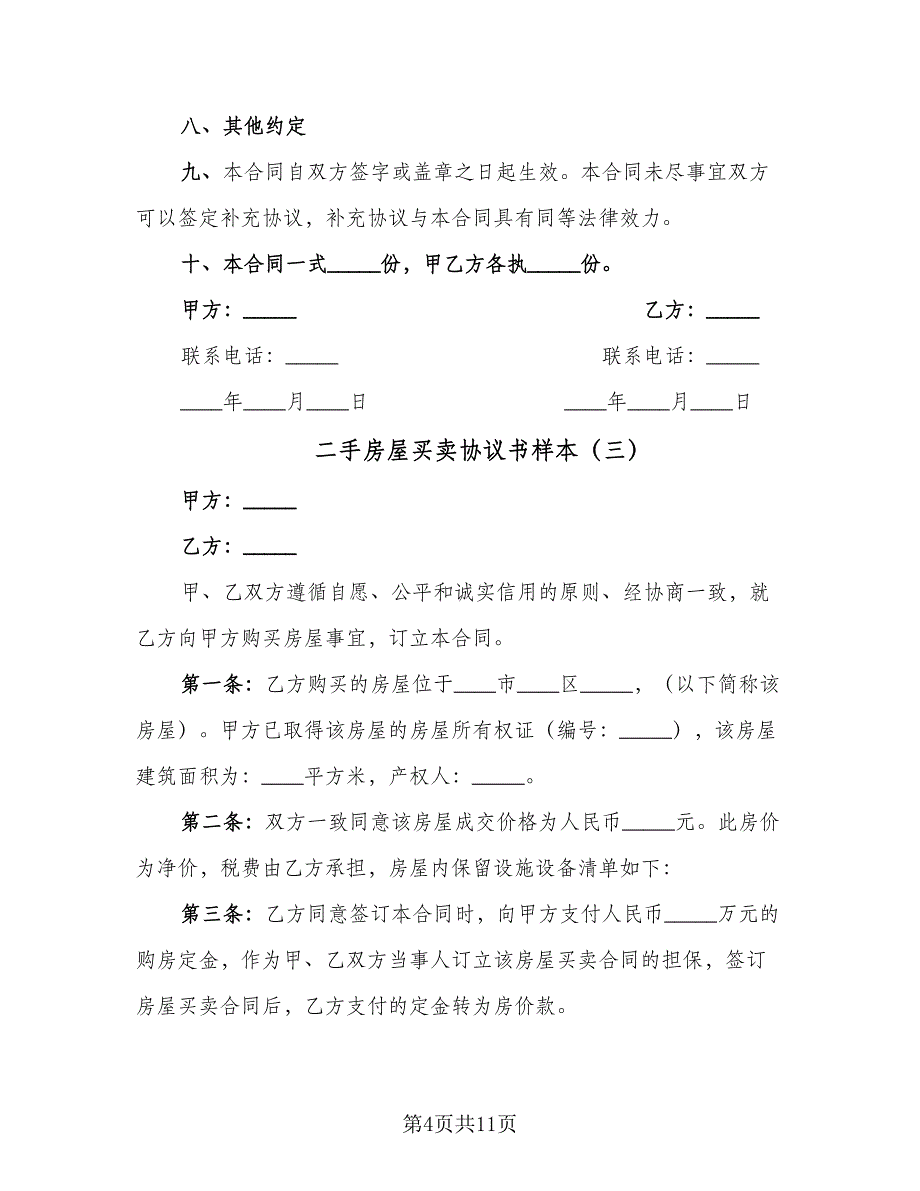 八、其他约定
九、本合同自双方签字或盖章之日起生效。本合同未尽事宜双方
可以签定补充协议，补充协议与本合同具有同等法律效力。
十、本合同一式_____份，甲乙方各执_____份。
甲方：_____ 乙方：_____
联系电话：_____ 联系电话：_____
____年____月____日 ____年____月____日
二手房屋买卖协议书样本（三）
甲方：_____
乙方：_____
甲、乙双方遵循自愿、公平和诚实信用的原则、经协商一致，就
乙方向甲方购买房屋事宜，订立本合同。
第一条：乙方购买的房屋位于____市____区_____，（以下简称该
房屋）。甲方已取得该房屋的房屋所有权证（编号：_____），该房屋
建筑面积为：____平方米，产权人：_____。
第二条：双方一致同意该房屋成交价格为人民币_____元。此房价
为净价，税费由乙方承担，房屋内保留设施设备清单如下：
第三条：乙方同意签订本合同时，向甲方支付人民币_____万元的
购房定金，作为甲、乙双方当事人订立该房屋买卖合同的担保，签订
房屋买卖合同后，乙方支付的定金转为房价款。
第4页共11页